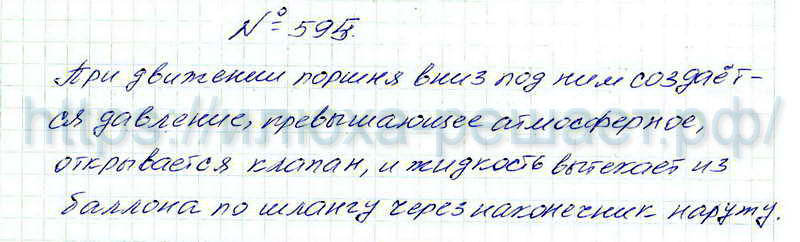 № 595.
При движении поршня вниз под ним создаёт-
ся давление, превышающее атмосферное,
открывается клапан, и жидкость вытекает из
баллона по шлангу через наконечник наружу.